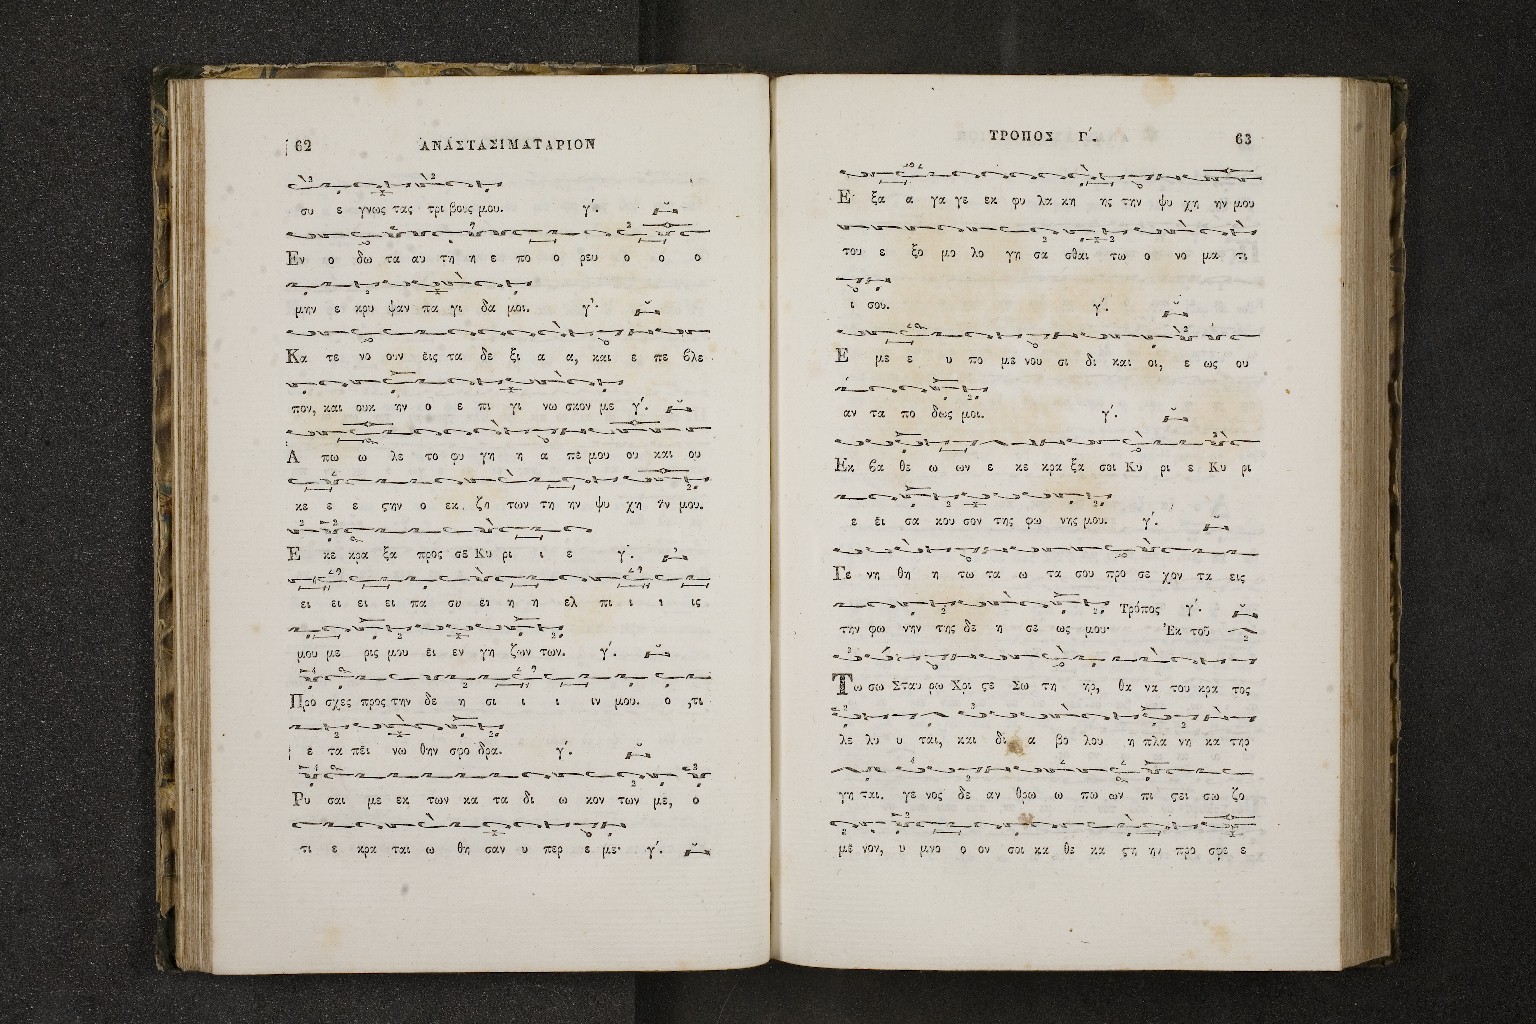 62 ΑΝΑΣΤΑΣΙΜΑΤΑΡΙΟΝ
συ ε γνως τας τρι βους μου. γ΄.
Εν ο δω τα αυ τη η ε πο ο ρευ ο ο ο
μην ε κρυ ψαν πα γι δα μοι. γ΄.
Κα τε νο ουν εις τα δε ξι α α, και ε πε βλε
πον, και ουκ ην ο ε πι γι νω σκον με γ΄.
Α πω ω λε το φυ γη η α πε μου ου και ου
κε ε ε ςην ο εκ ζη των τη ην ψυ χη ην μου.
Ε κε κρα ξα προς σε Κυ ρι ι ε γ΄.
ει ει ει ει πα συ ει η η ελ πι ι ι ις
μου με ρις μου ει εν γη ζων των. γ΄.
Προ σχες προς την δε η σι ι ι ιν μου. ο ,τι
ε τα πει νω θην σφο δρα. γ΄.
Ρυ σαι με εκ των κα τα δι ω κον των με, ο
τι ε κρα ται ω θη σαν υ περ ε με· γ΄.
ΤΡΟΠΟΣ Γ΄. 63
Ε ξα α γα γε εκ φυ λα κη ης την ψυ χη ην μου
του ε ξο μο λο γη σα σθαι τω ο νο μα τι
ι σου. γ΄.
Ε με ε υ πο με νου σι δι και οι, ε ως ου
αν τα πο δως μοι. γ΄.
Εκ βα θε ω ων ε κε κρα ξα σοι Κυ ρι ε Κυ ρι
ε ει σα κου σον της φω νης μου. γ΄.
Γε νη θη η τω τα ω τα σου προ σε χον τα εις
την φω νην της δε η σε ως μου· Τρόπος γ΄. Ἐκ τοῦ
Τω σω Σταυ ρω Χρι ςε Σω τη ηρ, θα να του κρα τος
λε λυ υ ται, και δι α βο λου η πλα νη κα τηρ
γη ται. γε νος δε αν θρω ω πω ων πι ςει σω ζο
με νον, υ μνο ο ον σοι κα θε κα ςη ην προ σφε ε